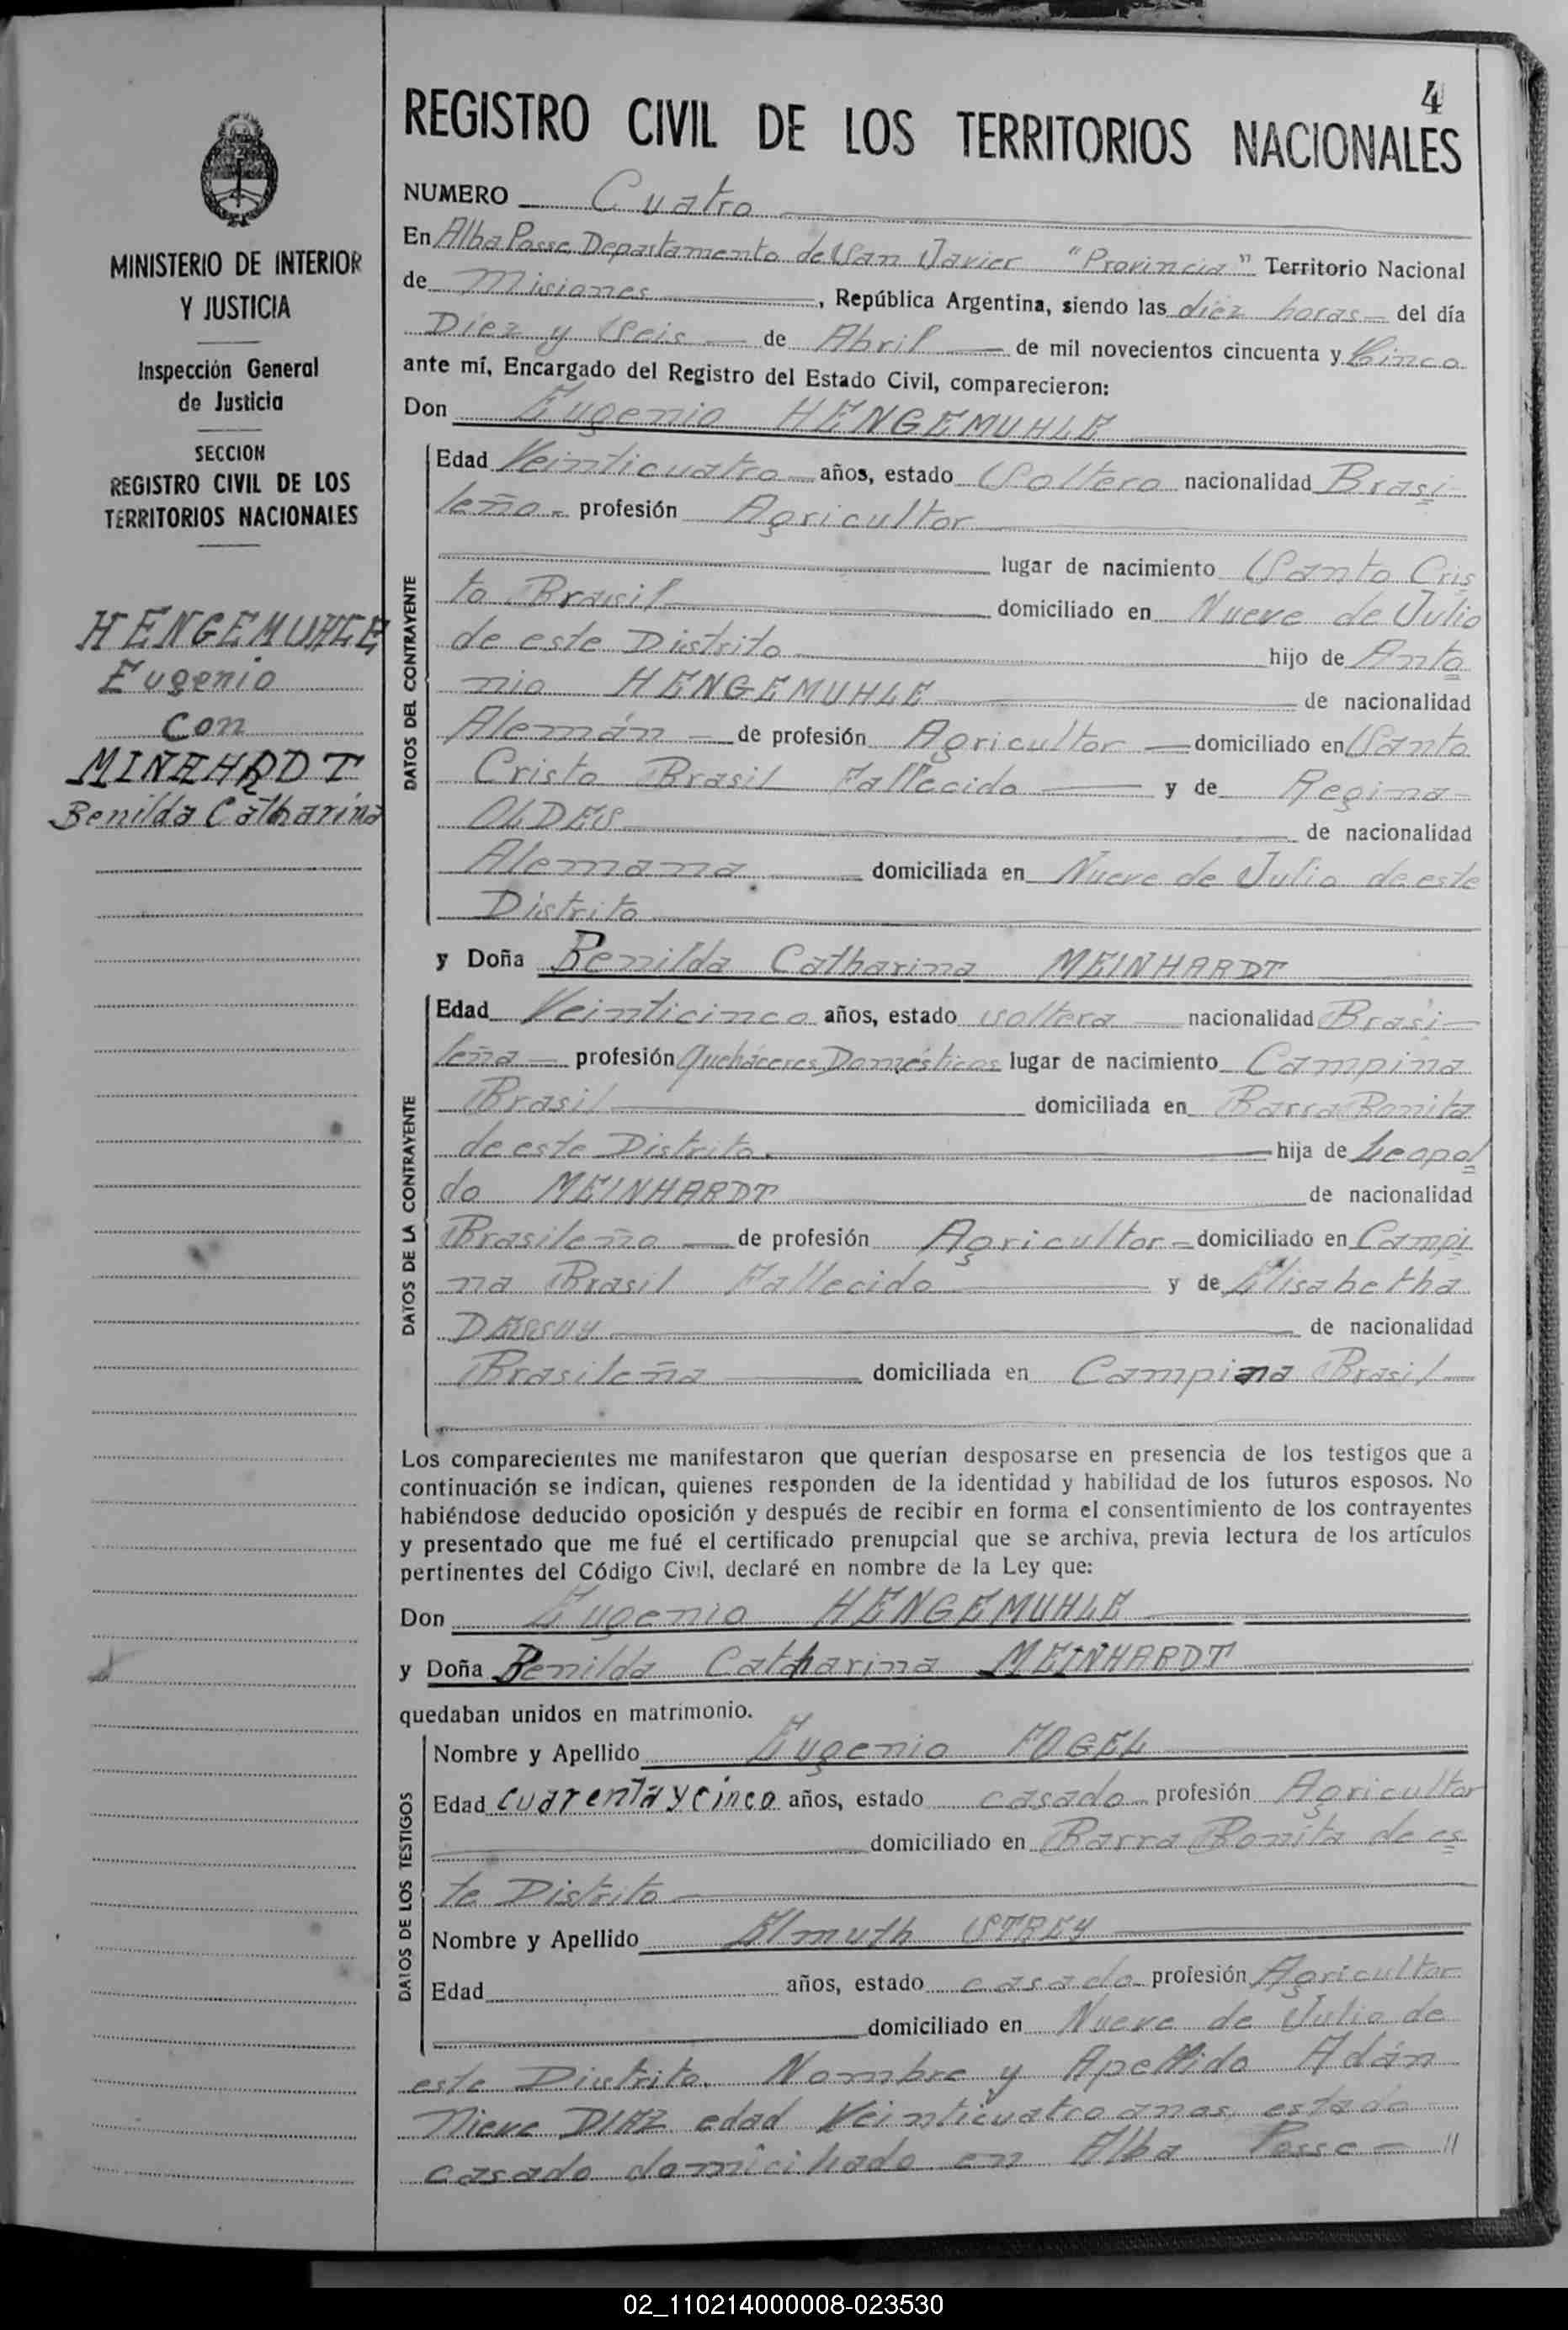 4
REGISTRO CIVIL DE LOS TERRITORIOS NACIONALES
MINISTERIO DE INTERIOR
Y JUSTICIA
Inspección General
de Justicia
SECCION
REGISTRO CIVIL DE LOS
TERRITORIOS NACIONALES
HENGEMUHLE
Eugenio
con
MINEHRDT
Benilda Catharina
NUMERO Cuatro
En Alba Posse Departamento de San Javier "Provincia" Territorio Nacional
de Misiones, República Argentina, siendo las diez horas del día
Diez y Seis de Abril de mil novecientos cincuenta y Cinco
ante mí, Encargado del Registro del Estado Civil, comparecieron:
Don Eugenio HENGEMUHLE
DATOS DEL CONTRAYENTE
Edad Veinticuatro años, estado Soltero nacionalidad Brasi
leño profesión Agricultor
lugar de nacimiento Santo Cris
to Brasil domiciliado en Nueve de Julio
de este Distrito hijo de Anto
nio HENGEMUHLE de nacionalidad
Alemán de profesión Agricultor domiciliado en Santo
Cristo Brasil Fallecido y de Regina
OLDES de nacionalidad
Alemana domiciliada en Nueve de Julio de este
Distrito
y Doña Benilda Catharina MEINHARDT
DATOS DE LA CONTRAYENTE
Edad Veinticinco años, estado soltera nacionalidad Brasi
leña profesión Quehaceres Domésticos lugar de nacimiento Campina
Brasil domiciliada en Barra Bonita
de este Distrito. hija de Leopol
do MEINHARDT de nacionalidad
Brasileño de profesión Agricultor domiciliado en Campi
na Brasil Fallecido y de Elisabetha
de nacionalidad
Brasileña domiciliada en Campina Brasil
Los comparecientes me manifestaron que querían desposarse en presencia de los testigos que a
continuación se indican, quienes responden de la identidad y habilidad de los futuros esposos. No
habiéndose deducido oposición y después de recibir en forma el consentimiento de los contrayentes
y presentado que me fué el certificado prenupcial que se archiva, previa lectura de los artículos
pertinentes del Código Civil, declaré en nombre de la Ley que:
Don Eugenio HENGEMUHLE
y Doña Benilda Catharina MEINHARDT
quedaban unidos en matrimonio.
DATOS DE LOS TESTIGOS
Nombre y Apellido Eugenio FOGEL
Edad cuarenta y cinco años, estado casado profesión Agricultor
domiciliado en Barra Bonita de es
te Distrito
Nombre y Apellido Elmuth STREY
Edad años, estado casado profesión Agricultor
domiciliado en Nueve de Julio de
este Distrito. Nombre y Apellido Adán
Nieve DIAZ edad Veinticuatro anos estado
casado domiciliado en Alba Posse "
02_110214000008-023530